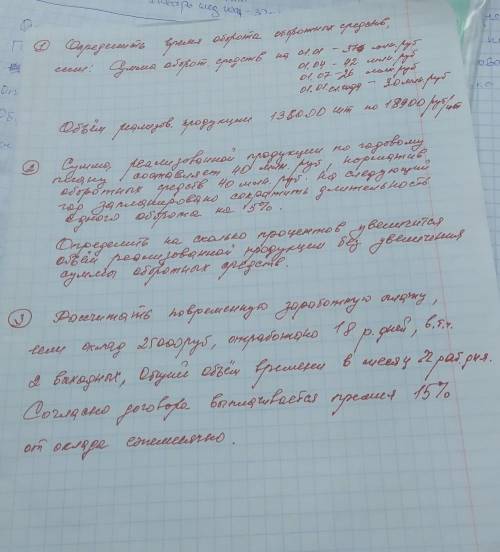 ① Определить время оборота оборотных средств,
если: Сумма оборот средств на 01.01 - 37 млн.руб
01.04 - 42 млн.руб
01.07 - 26 млн.руб
01.01 след года - 30 млн.руб
Объём реализов. продукции 138000 шт по 18900 руб/шт
② Сумма реализованной продукции по годовому
плану составляет 40 млн. руб, норматив
оборотных средств 40 млн. руб. На следующий
год запланировано сократить длительность
одного оборота на 15%.
Определить на сколько процентов увеличится
объём реализованной продукции без увеличения
суммы оборотных средств.
③ Рассчитать повременную заработную плату,
если оклад 25000руб, отработано 18 р.дней, в.т.ч.
2 выходных, Общий объём времени в месяц 22 раб.дня.
Согласно договора выплачивается премия 15%
от оклада ежемесячно.